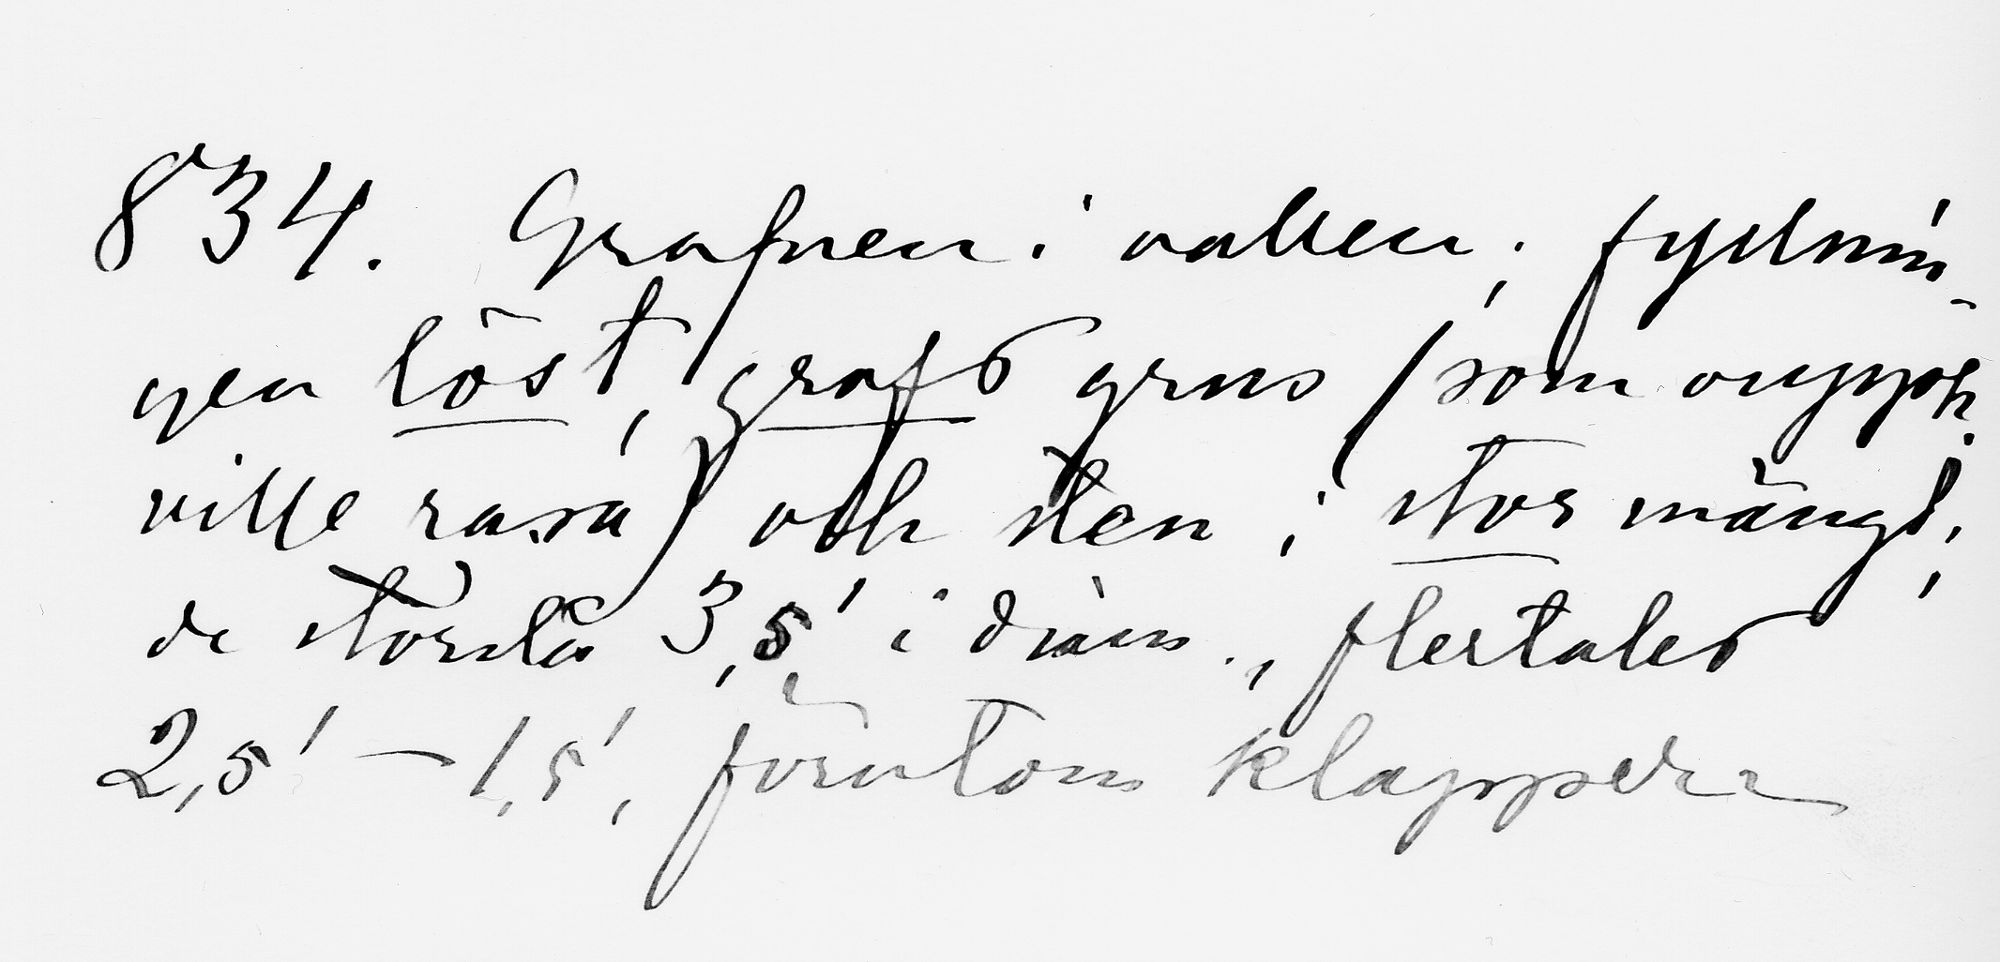 834. Grafven i vallen; fyldnin-
gen löst, groft grus (som oupph.
ville rasa) och sten i stor mängd;
de största 3,5' i diam., flertalet
2,5' — 1,5', förutom klappersten